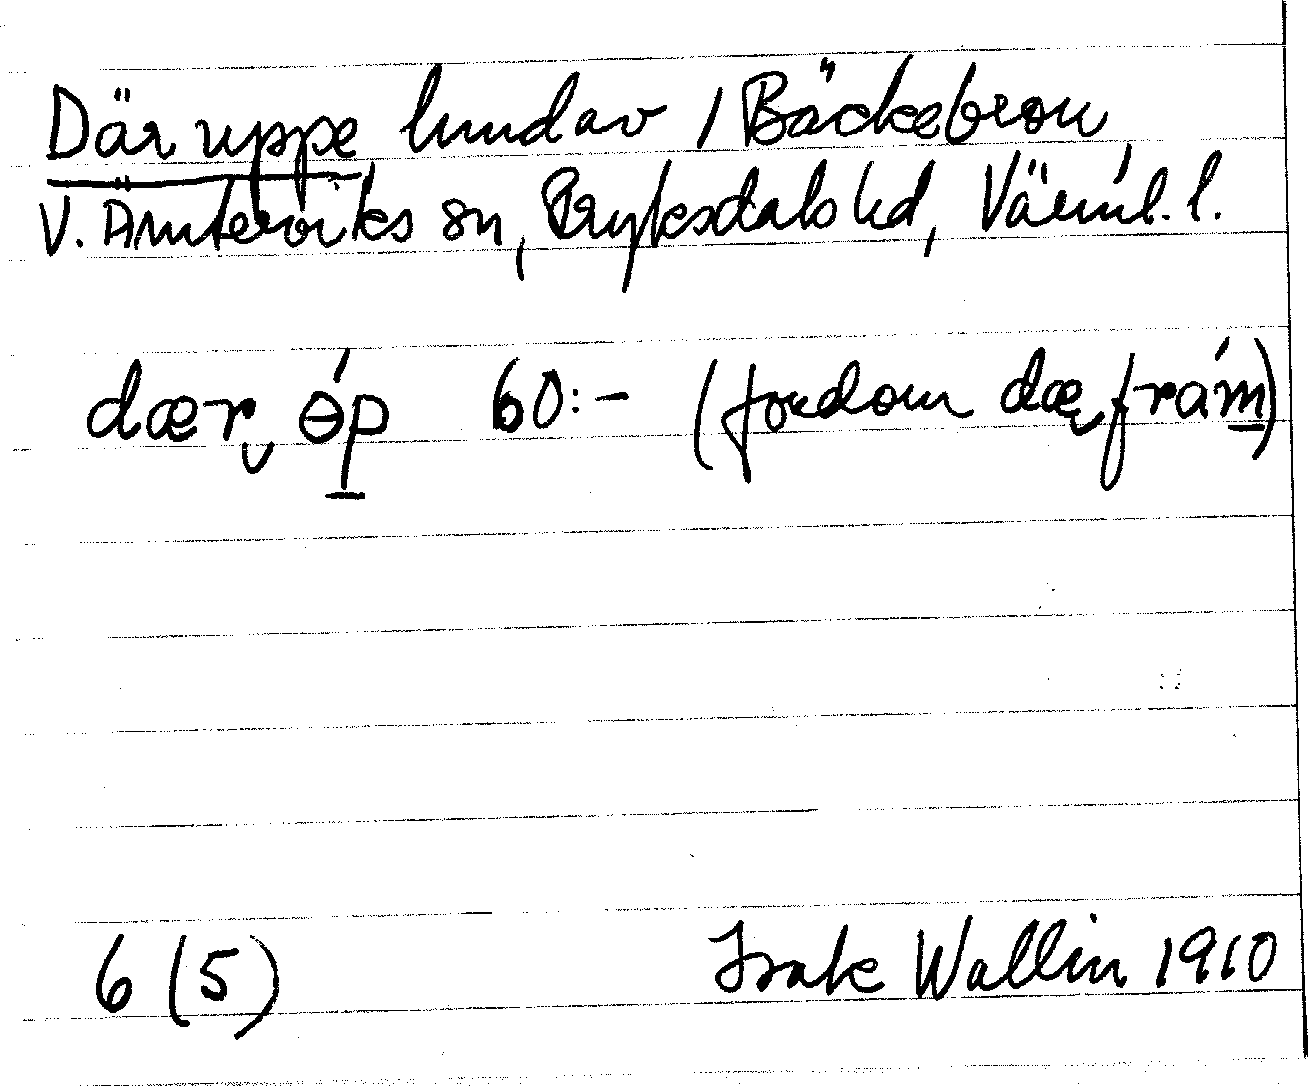 Däruppe hmdav / Bäckebron
V. Ämterviks sn, Fryksdals hd, Värml. l.
dær ɵ́p 60:- (fordom dæ frám)
6 (5) Isak Wallin 1910